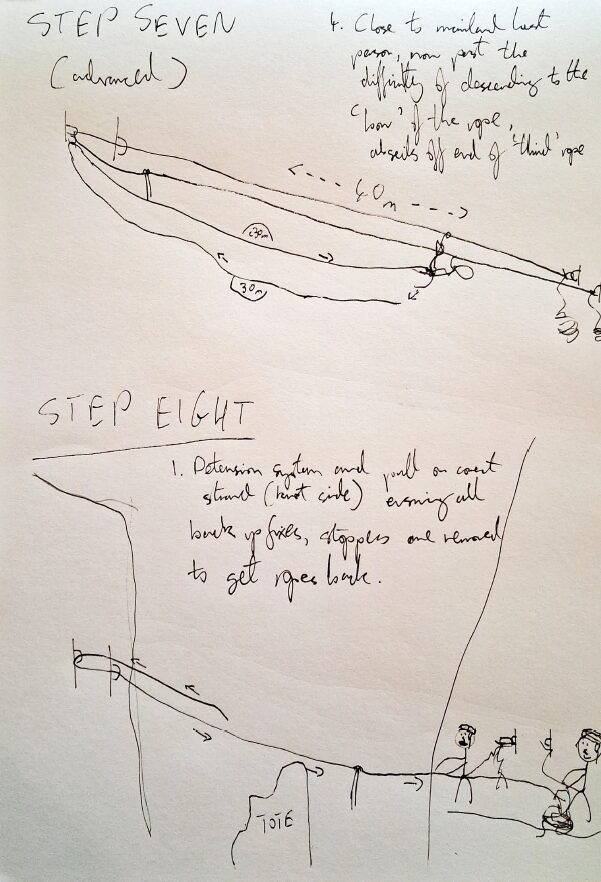 STEP SEVEN
(advanced)
4. Close to mainland last
person, now past the
difficulty of descending to the
'low' of the rope,
abseils off end of 'third' rope
40m
30m
30m
STEP EIGHT
1. Detension system and pull on correct
strand (knot side) ensuring all
back up fixes, stoppers are removed
to get ropes back.
TOTE